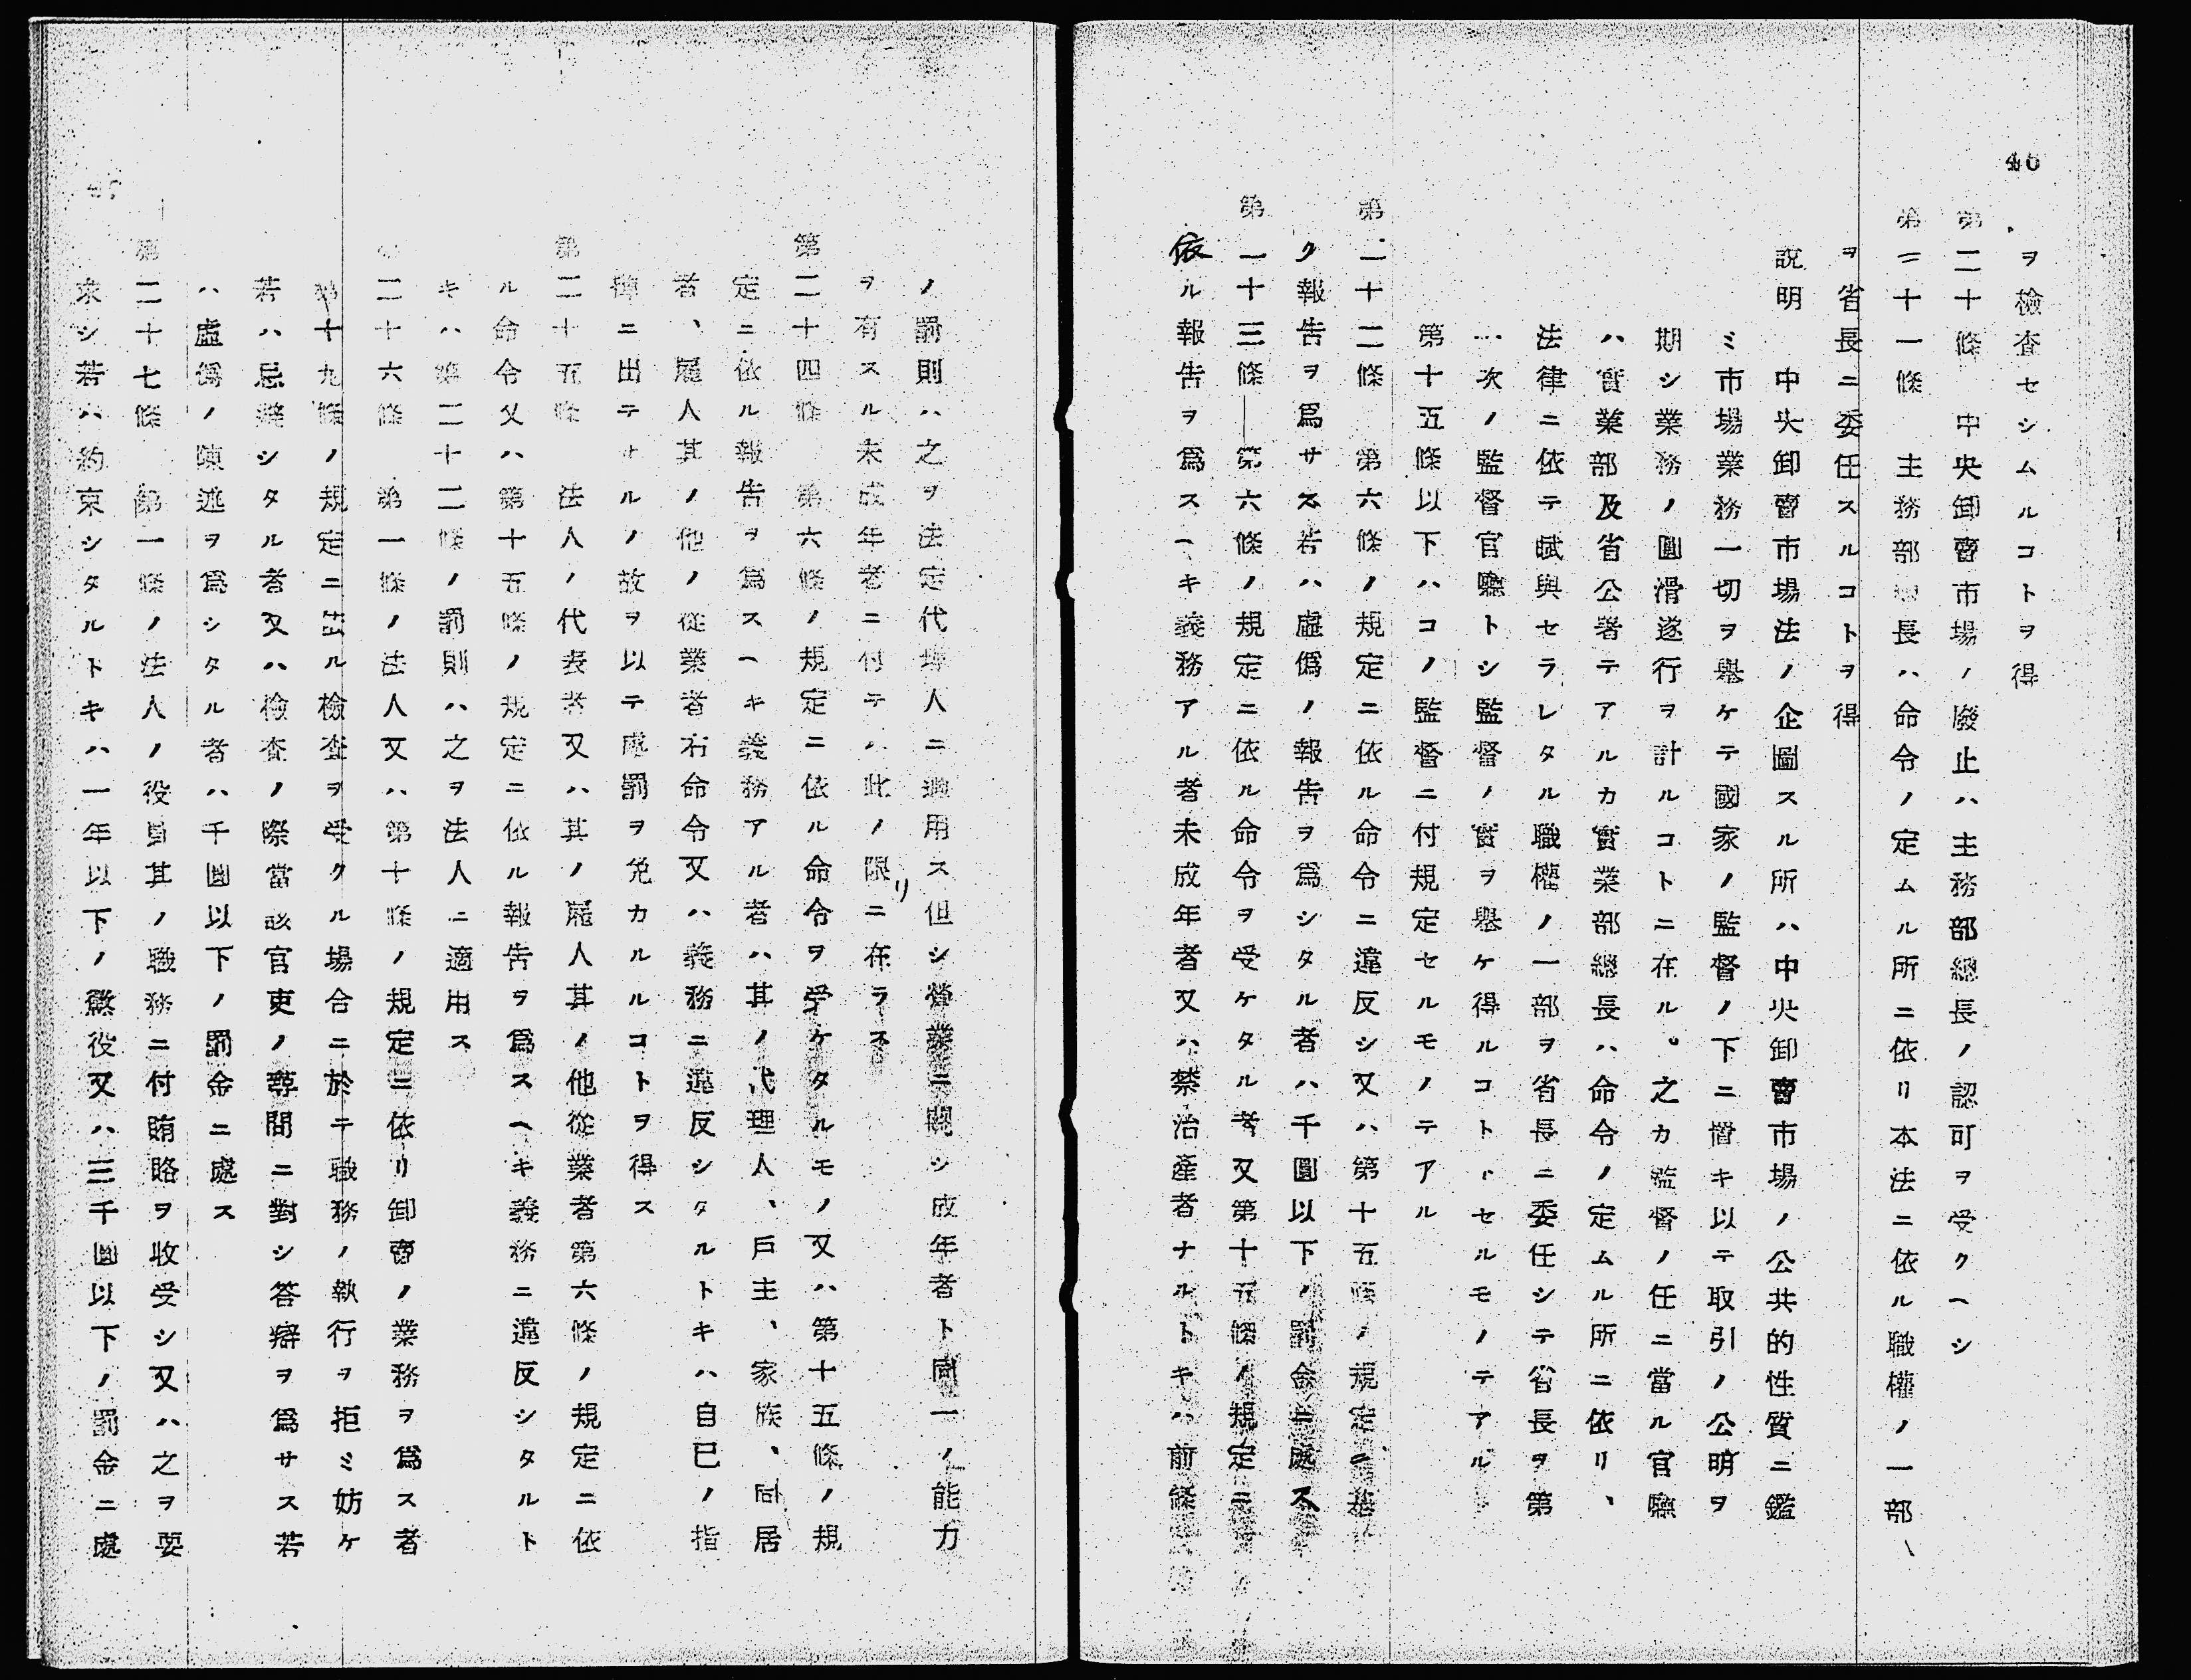 46
ヲ檢査セシムルコトヲ得
第二十條　中央卸賣市場ノ廢止ハ主務部總長ノ認可ヲ受クヘシ
第二十一條　主務部總長ハ命令ノ定ムル所ニ依リ本法ニ依ル職權ノ一部
ヲ省長ニ委任スルコトヲ得
説明　中央卸賣市場法ノ企圖スル所ハ中央卸賣市場ノ公共的性質ニ鑑
ミ市場業務一切ヲ擧ケテ國家ノ監督ノ下ニ置キ以テ取引ノ公明ヲ
期シ業務ノ圓滑遂行ヲ計ルコトニ在ル。之カ監督ノ任ニ當ル官廳
ハ實業部及省公署テアルカ實業部總長ハ命令ノ定ムル所ニ依リ、
法律ニ依テ賦與セラレタル職權ノ一部ヲ省長ニ委任シテ省長ヲ第
一次ノ監督官廳トシ監督ノ實ヲ擧ケ得ルコトトセルモノテアル
第十五條以下ハコノ監督ニ付規定セルモノテアル
第二十二條　第六條ノ規定ニ依ル命令ニ違反シ又ハ第十五條ノ規定ニ基
ク報告ヲ爲サス若ハ虛僞ノ報告ヲ爲シタル者ハ千圓以下ノ罰金ニ處ス
第二十三條　第六條ノ規定ニ依ル命令ヲ受ケタル者又第十五條ノ規定ニ
依ル報告ヲ爲スヘキ義務アル者未成年者又ハ禁治產者ナルトキハ前條
ノ罰則ハ之ヲ法定代理人ニ適用ス但シ營業ニ關シ成年者ト同一ノ能力
ヲ有スル未成年者ニ付テハ此ノ限リニ在ラス
第二十四條　第六條ノ規定ニ依ル命令ヲ受ケタルモノ又ハ第十五條ノ規
定ニ依ル報告ヲ爲スヘキ義務アル者ハ其ノ代理人、戶主、家族、同居
者、雇人其ノ他ノ從業者右命令又ハ義務ニ違反シタルトキハ自己ノ指
揮ニ出テサルノ故ヲ以テ處罰ヲ免カルルコトヲ得ス
第二十五條　法人ノ代表者又ハ其ノ雇人其ノ他從業者第六條ノ規定ニ依
ル命令又ハ第十五條ノ規定ニ依ル報告ヲ爲スヘキ義務ニ違反シタルト
キハ第二十二條ノ罰則ハ之ヲ法人ニ適用ス
第二十六條　第一條ノ法人又ハ第十條ノ規定ニ依リ卸賣ノ業務ヲ爲ス者
第十九條ノ規定ニ依ル檢査ヲ受クル場合ニ於テ職務ノ執行ヲ拒ミ妨ケ
若ハ忌避シタル者又ハ檢査ノ際當該官吏ノ尋問ニ對シ答辯ヲ爲サス若
ハ虛僞ノ陳述ヲ爲シタル者ハ千圓以下ノ罰金ニ處ス
第二十七條　第一條ノ法人ノ役員其ノ職務ニ付賄賂ヲ收受シ又ハ之ヲ要
求シ若ハ約束シタルトキハ一年以下ノ懲役又ハ三千圓以下ノ罰金ニ處